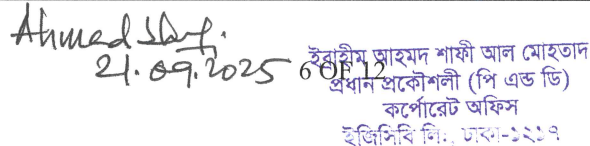 Ahmed Shafi.
21.09.2025
6 OF 12
ইব্রাহীম আহমদ শাফী আল মোহতাদ
প্রধান প্রকৌশলী (পি এন্ড ডি)
কর্পোরেট অফিস
ইজিসিবি লিঃ, ঢাকা-১২১৭